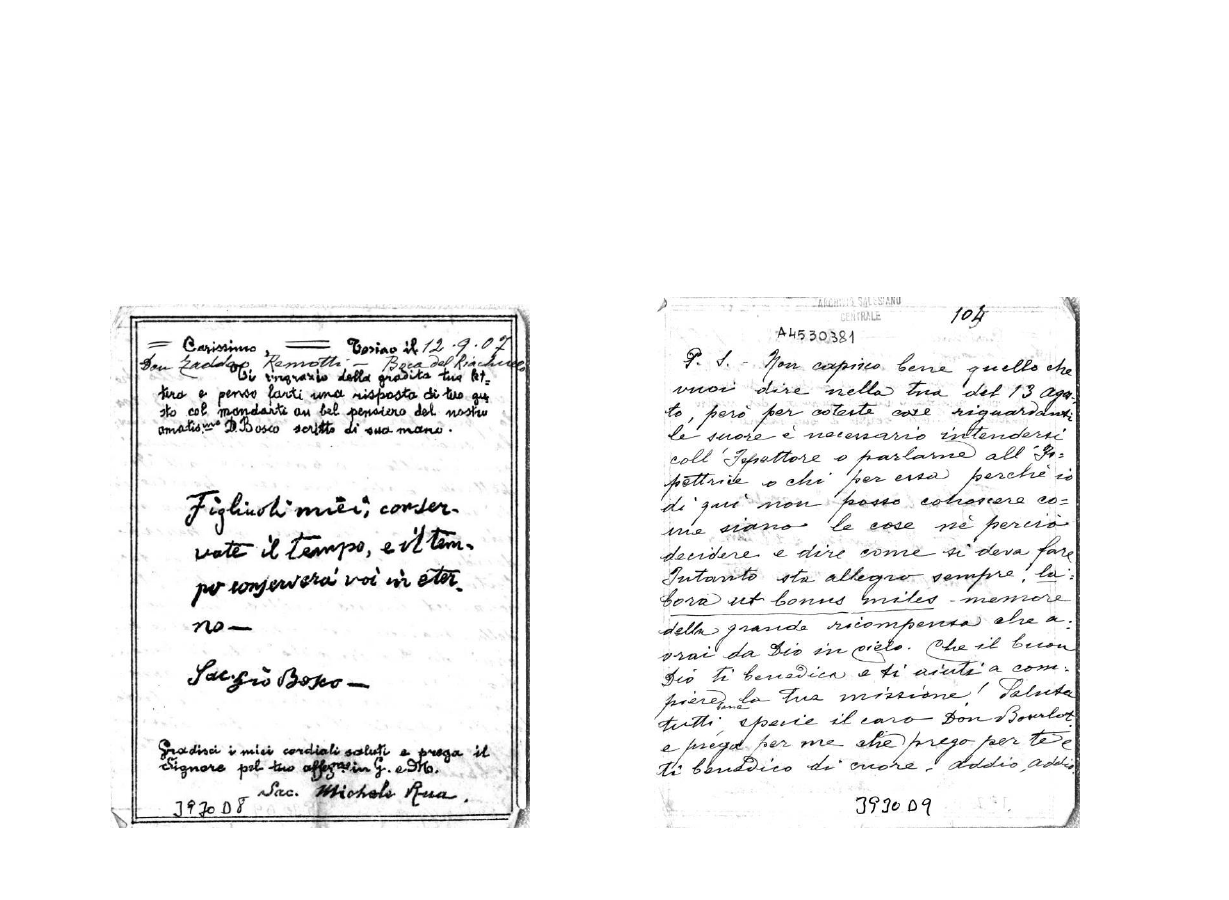 = Carissimo, = Torino il 12.9.07
Don Taddeo Remotti - Boca del Riachuelo
Ti ringrazio della gradita tua let=
tera e penso farti una risposta di tuo gu
sto col mandarti un bel pensiero del nostro
amatis.mo D. Bosco scritto di sua mano.
Figliuoli miei, conser-
vate il tempo, e il tem-
po conserverà voi in eter-
no —
Sac. Gio Bosco —
Gradisci i miei cordiali saluti e prega il
Signore pel tuo affez.mo in G. e M.
Sac. Michele Rua.
3930 D8
ARCHIVIO SALESIANO
CENTRALE
104
A4530381
P. S. - Non capisco bene quello che
vuoi dire nella tua del 13 ago=
to, però per coteste cose riguardanti
le suore è necessario intendersi
coll'Ispettore o parlarne all'Is=
pettrice o chi per essa perchè io
di quì non posso conoscere co=
me siano le cose nè perciò
decidere e dire come si deva fare
Intanto sta allegro sempre, la=
bora ut bonus miles - memore
della grande ricompensa che a=
vrai da Dio in cielo. Che il buon
Dio ti benedica e ti aiuti a com=
piere la tua missione! Saluta
tutti specie il caro Don Bourlot
e prega per me che prego per te e
ti benedico di cuore. addio, addio
3930 D9